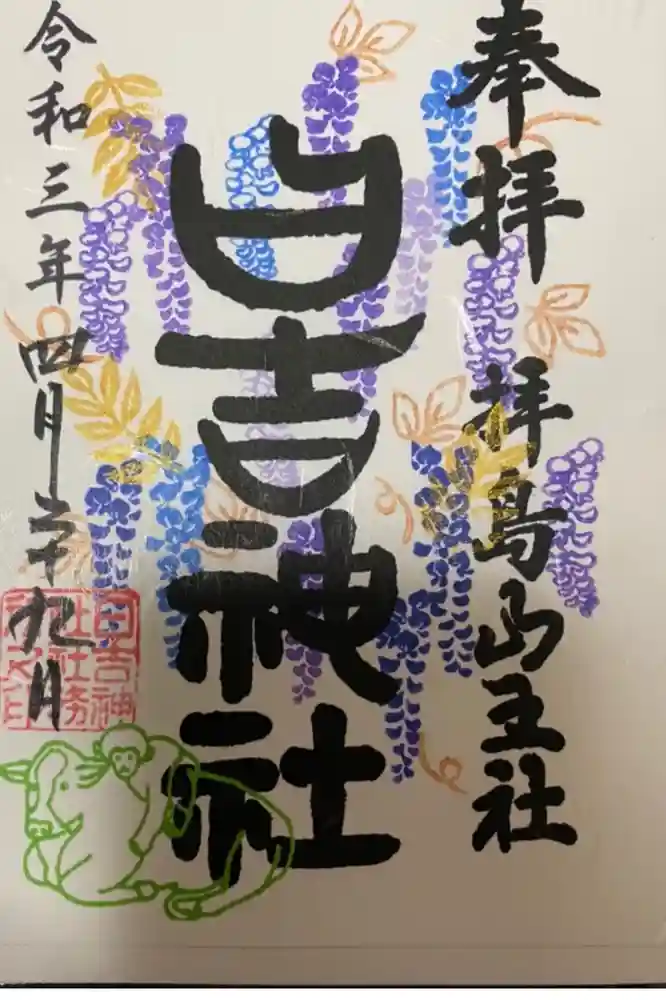 奉拝 拝島山王社
日吉神社
令和三年四月二十九日
日吉神
社社務